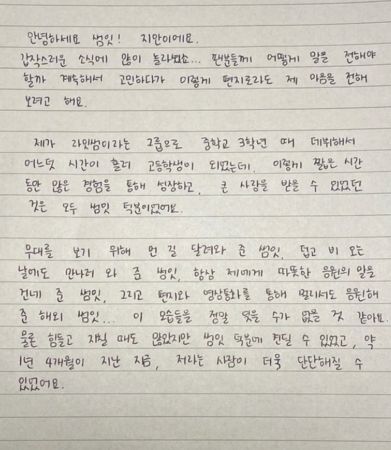 안녕하세요 범잇! 지안이에요.
갑작스러운 소식에 많이 놀라셨죠... 팬분들께 어떻게 말을 전해야
할까 계속해서 고민하다가 이렇게 편지로라도 제 마음을 전해
보려고 해요.
제가 라잇썸이라는 그룹으로 중학교 3학년 때 데뷔해서
어느덧 시간이 흘러 고등학생이 되었는데, 이렇게 짧은 시간
동안 많은 경험을 통해 성장하고, 큰 사랑을 받을 수 있었던
것은 모두 썸잇 덕분이었어요.
무대를 보기 위해 먼 길 달려와 준 썸잇, 덥고 비 오는
날에도 만나러 와 준 썸잇, 항상 제에게 따뜻한 응원의 말을
건네 준 썸잇, 그리고 편지와 영상통화를 통해 멀리서도 응원해
준 해외 썸잇... 이 모습들을 정말 잊을 수가 없을 것 같아요.
물론 힘들고 지칠 때도 많았지만 썸잇 덕분에 견딜 수 있었고, 약
1년 4개월이 지난 지금, 저라는 사람이 더욱 단단해질 수
있었어요.